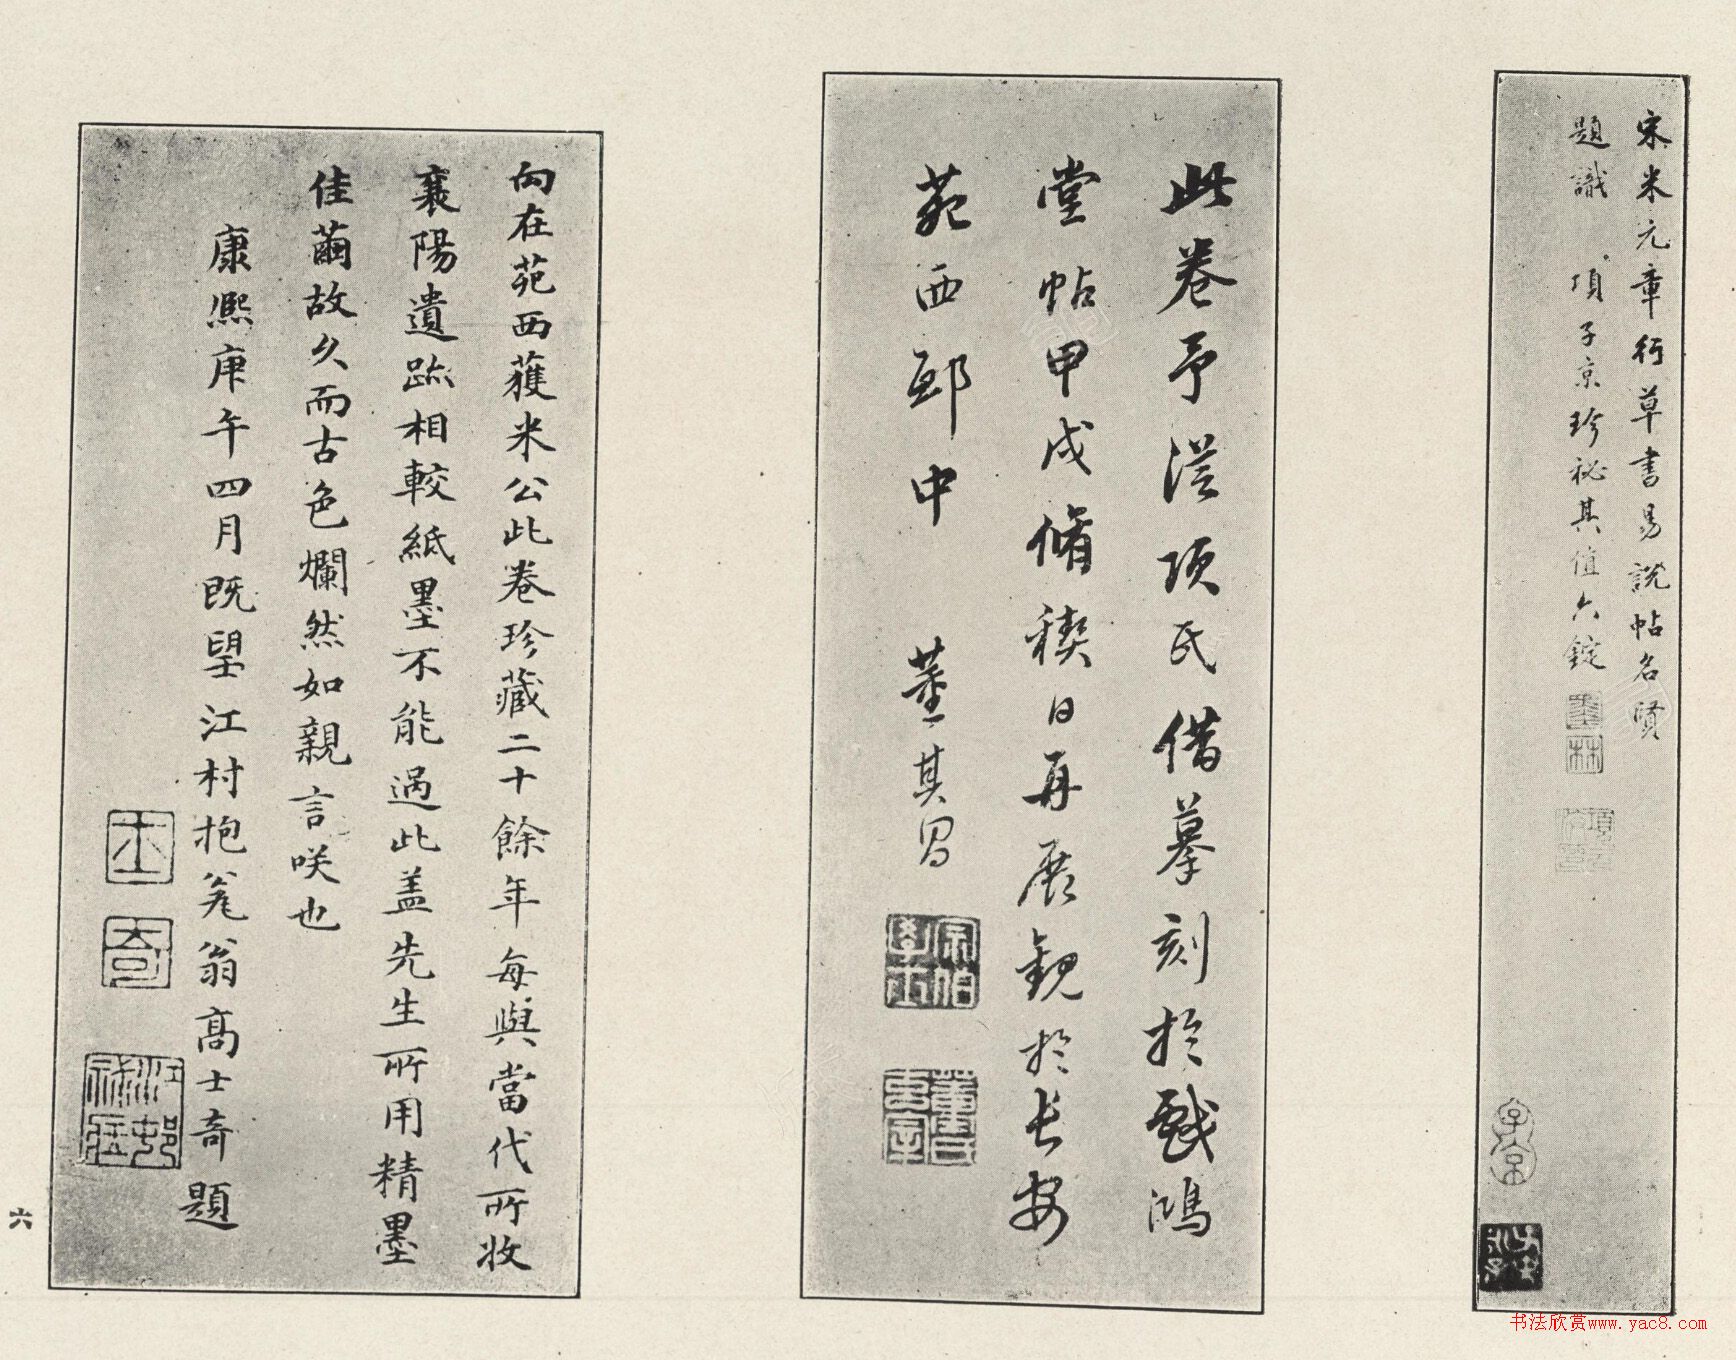 宋米元章行草書易說帖名賢
題識 項子京珍祕其值六錠
子京
此卷予從項氏借摹刻於戲鴻
堂帖甲戌脩禊日再展觀於長安
苑西邸中 董其昌
宗伯學士
董氏玄宰
向在苑西獲米公此卷珍藏二十餘年每與當代所收
襄陽遺跡相較紙墨不能過此盖先生所用精墨
佳繭故久而古色爛然如親言咲也
康熙庚午四月既望江村抱瓮翁高士奇題
士奇
六
书法欣赏www.yac8.com